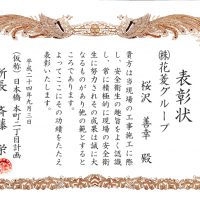 表彰状
㈱花菱グループ
桜沢 善幸 殿
貴方は当現場の工事施工に際
し、安全衛生の趣旨をよく認識
し、常に積極的に現場の安全衛
生に努力されその成果は誠に大
なるものがあり他の範とすると
ころであります。
よってここにその功績をたたえ
表彰いたします。
平成二十四年九月三日
（仮称）日本橋本町二丁目計画
所長 斉藤 栄